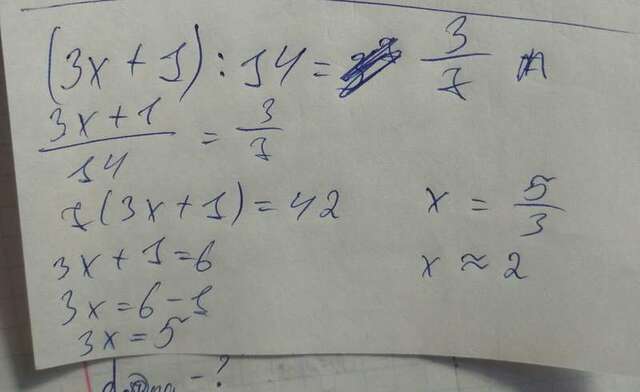 (3x + 1) : 14 = 3/7
(3x + 1)/14 = 3/7
7(3x + 1) = 42
3x + 1 = 6
3x = 6 - 1
3x = 5
x = 5/3
x ≈ 2
- ?